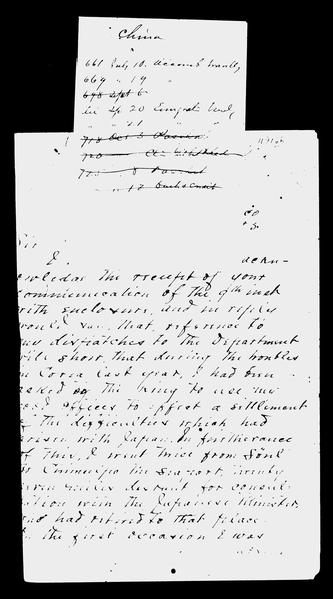 China
661 July 10.
669 " 19 "
698 Sept 6
Sp 20
" 21 " "
718 Oct 3
720
8
" 12
Sir
I ackn-
owledge the receipt of your
communication of the 9th inst
with enclosure, and in reply
would say, that, reference to
my dispatches to the Department
will show, that during the troubles
in Corea last year, I had been
asked by the King to use my
good offices to effect a settlement
of the difficulties which had
arisen with Japan. In furtherance
of this, I went twice from Söul
to Chimulpo the seaport, twenty
seven miles distant for consul-
tation with the Japanese Minister,
who had retired to that place.
On the first occasion I was